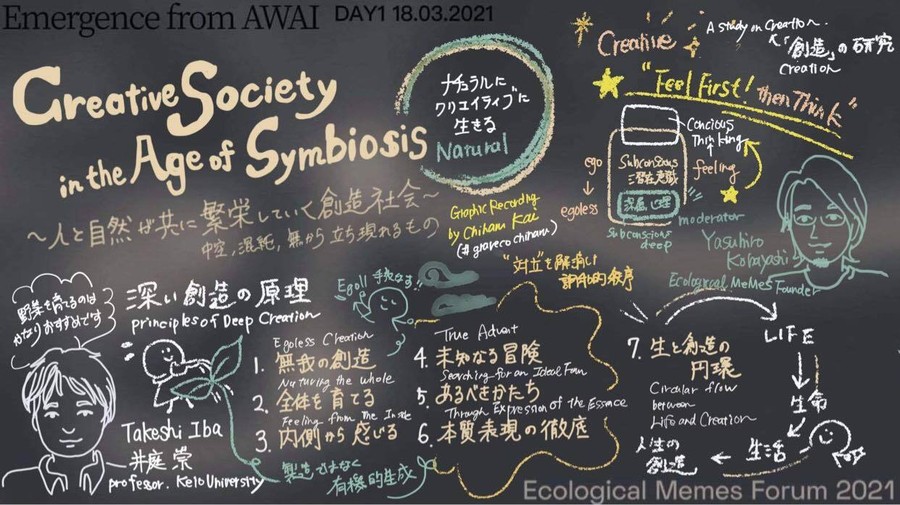 Emergence from AWAI DAY1 18.03.2021
Creative Society
in the Age of Symbiosis
～人と自然が共に繁栄していく創造社会～
中空,混純,無から立ち現れるもの
ナチュラルに
クリエイティブに
生きる
Natural
Graphic Recording
by Chiham Kai
(# graveco chiharu)
Creative
A study on Creation
「創造」の研究
Creation
"Feel First!
then Think"
Concious
Thinking
ego
egoless
Subconsious
潜在意識
深層心理
Subconsious
deep
feeling
moderator
Yasuhiro
Kobayashi
Ecological Memes Founder
"対立"を解消し
野菜を育てるのは
かなりおすすめです
深い創造の原理
principles of Deep Creation
Takeshi Iba
井庭 崇
professor. Keio University
Egoless Creation
1. 無我の創造
Nuturing the whole
2. 全体を育てる
Feeling from the Inside
3. 内側から感じる
製造ではなく
有機的生成
True Advant
4. 未知なる冒険
Searching for an Ideal Form
5. あるべきかたち
Through Expression of the Essence
6. 本質表現の徹底
7. 生と創造の
円環
Circular flow
between
Life and Creation
LIFE
生命
生活
人生の
創造
Ecological Memes Forum 2021